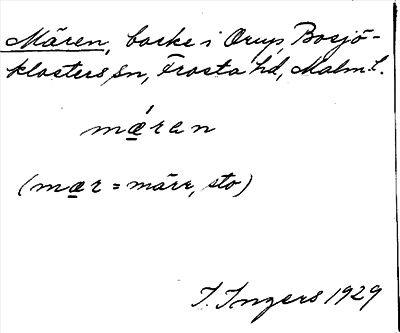 Mären, backe i Orup, Bosjö-
klosters sn, Frosta hd, Malm. l.
mǽran
(mær = märr, sto)
I. Ingers 1929